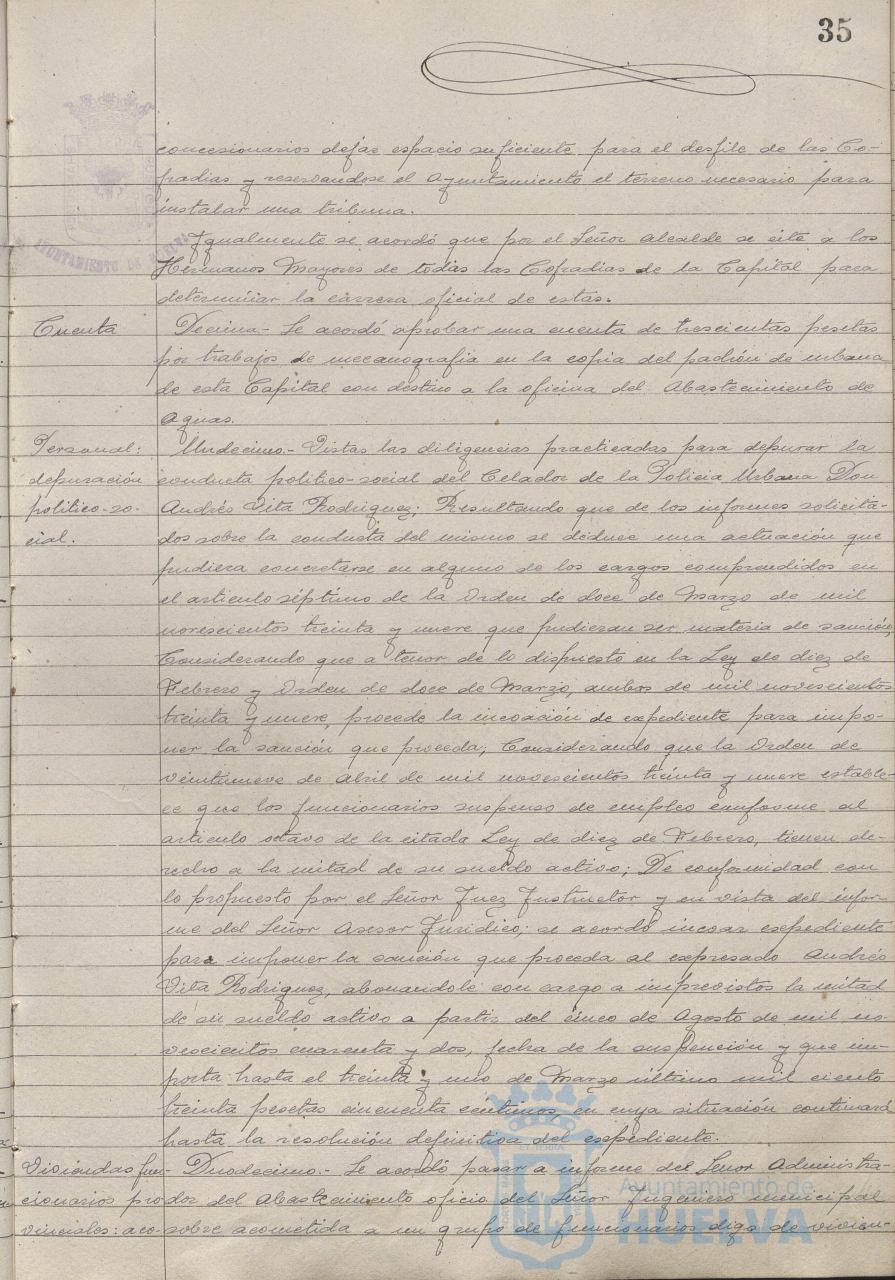 35
concesionarios dejar espacio suficiente para el desfile de las Co-
fradias y reservandose el Ayuntamiento el terreno necesario para
instalar una tribuna.
Igualmente se acordó que por el Señor Alcalde se cite a los
Hermanos Mayores de todas las Cofradias de la Capital para
determinar la carrera oficial de estas.
Cuenta
Decima.- Se acordó aprobar una cuenta de trescientas pesetas
por trabajos de mecanografia en la copia del padrón de urbana
de esta Capital con destino a la oficina del Abastecimiento de
Aguas.
Personal:
depuración
politico-so-
cial.
Undecimo.- Vistas las diligencias practicadas para depurar la
conducta politico-social del Celador de la Policia Urbana Don
Andrés Vita Rodriguez; Resultando que de los informes solicita-
dos sobre la conducta del mismo se deduce una actuación que
pudiera concretarse en alguno de los cargos comprendidos en
el articulo séptimo de la Orden de doce de Marzo de mil
novescientos treinta y nueve que pudieran ser materia de sanción;
Considerando que a tenor de lo dispuesto en la Ley de diez de
Febrero y Orden de doce de Marzo, ambos de mil novescientos
treinta y nueve, procede la incoación de expediente para impo-
ner la sanción que proceda; Considerando que la Orden de
veintinueve de Abril de mil novescientos treinta y nueve estable-
ce que los funcionarios suspenso de empleo conforme al
articulo octavo de la citada Ley de diez de Febrero, tienen de-
recho a la mitad de su sueldo activo; De conformidad con
lo propuesto por el Señor Juez Instructor y en vista del infor-
me del Señor Asesor Juridico; se acordó incoar expediente
para imponer la sanción que proceda al expresado Andrés
Vita Rodriguez, abonandole con cargo a imprevistos la mitad
de su sueldo activo a partir del cinco de Agosto de mil no-
vescientos cuarenta y dos, fecha de la suspención y que im-
porta hasta el treinta y uno de Marzo último mil ciento
treinta pesetas cincuenta céntimos, en cuya situación continuará
hasta la resolución definitiva del expediente.
Viviendas fun-
cionarios pro-
vinciales: aco-
Duodecimo.- Se acordó pasar a informe del Señor Administra-
dor del Abastecimiento oficio del Señor Ingeniero municipal
sobre acometida a un grupo de funcionarios digo de vivien-
AYUNTAMIENTO DE HUELVA
Ayuntamiento de
HUELVA